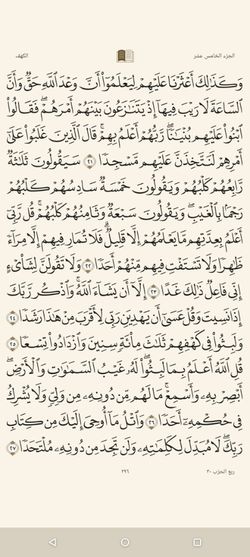 الجزء الخامس عشر
الكهف
وَكَذَٰلِكَ أَعْثَرْنَا عَلَيْهِمْ لِيَعْلَمُوٓا۟ أَنَّ وَعْدَ ٱللَّهِ حَقٌّ وَأَنَّ
ٱلسَّاعَةَ لَا رَيْبَ فِيهَآ إِذْ يَتَنَٰزَعُونَ بَيْنَهُمْ أَمْرَهُمْ ۖ فَقَالُوا۟
ٱبْنُوا۟ عَلَيْهِم بُنْيَٰنًا ۖ رَّبُّهُمْ أَعْلَمُ بِهِمْ ۚ قَالَ ٱلَّذِينَ غَلَبُوا۟ عَلَىٰٓ
أَمْرِهِمْ لَنَتَّخِذَنَّ عَلَيْهِم مَّسْجِدًا ٢١ سَيَقُولُونَ ثَلَٰثَةٌ
رَّابِعُهُمْ كَلْبُهُمْ وَيَقُولُونَ خَمْسَةٌ سَادِسُهُمْ كَلْبُهُمْ
رَجْمًۢا بِٱلْغَيْبِ ۖ وَيَقُولُونَ سَبْعَةٌ وَثَامِنُهُمْ كَلْبُهُمْ ۚ قُل رَّبِّىٓ
أَعْلَمُ بِعِدَّتِهِم مَّا يَعْلَمُهُمْ إِلَّا قَلِيلٌ ۗ فَلَا تُمَارِ فِيهِمْ إِلَّا مِرَآءً
ظَٰهِرًا وَلَا تَسْتَفْتِ فِيهِم مِّنْهُمْ أَحَدًا ٢٢ وَلَا تَقُولَنَّ لِشَا۟ىْءٍ
إِنِّى فَاعِلٌ ذَٰلِكَ غَدًا ٢٣ إِلَّآ أَن يَشَآءَ ٱللَّهُ ۚ وَٱذْكُر رَّبَّكَ
إِذَا نَسِيتَ وَقُلْ عَسَىٰٓ أَن يَهْدِيَنِ رَبِّى لِأَقْرَبَ مِنْ هَٰذَا رَشَدًا ٢٤
وَلَبِثُوا۟ فِى كَهْفِهِمْ ثَلَٰثَ مِا۟ئَةٍ سِنِينَ وَٱزْدَادُوا۟ تِسْعًا ٢٥
قُلِ ٱللَّهُ أَعْلَمُ بِمَا لَبِثُوا۟ ۖ لَهُۥ غَيْبُ ٱلسَّمَٰوَٰتِ وَٱلْأَرْضِ ۖ
أَبْصِرْ بِهِۦ وَأَسْمِعْ ۚ مَا لَهُم مِّن دُونِهِۦ مِن وَلِىٍّ وَلَا يُشْرِكُ
فِى حُكْمِهِۦٓ أَحَدًا ٢٦ وَٱتْلُ مَآ أُوحِىَ إِلَيْكَ مِن كِتَابِ
رَبِّكَ ۖ لَا مُبَدِّلَ لِكَلِمَٰتِهِۦ وَلَن تَجِدَ مِن دُونِهِۦ مُلْتَحَدًا ٢٧
ربع الحزب ٣٠
٢٩٦